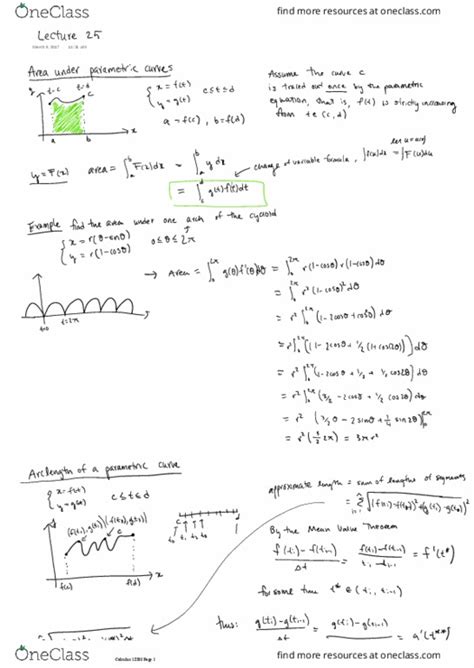 OneClass
find more resources at oneclass.com
Lecture 25
Area under parametric curves
t=c
t=d
C
a
b
x
x = f(t)
y = g(t)
c≤t≤d
a = f(c), b = f(d)
Assume the curve C
is traced out once by the parametric
equation, that is, f(t) is strictly increasing
from t∈(c,d)
y = F(x)
area = ∫_a^b F(x)dx = ∫_a^b y dx
change of variable formula,
= ∫_c^d g(t)f'(t)dt
Example find the area under one arch of the cycloid
x = r(θ-sinθ)
y = r(1-cosθ)
0≤θ≤2π
→ Area = ∫_0^{2π} g(θ)f'(θ)dθ = ∫_0^{2π} r(1-cosθ)r(1-cosθ)dθ
= ∫_0^{2π} r²(1-cosθ)²dθ
= r² ∫_0^{2π} (1-2cosθ+cos²θ)dθ
= r² ∫_0^{2π} (1-2cosθ+1/2(1+cos2θ))dθ
= r² ∫_0^{2π} (1-2cosθ+1/2+1/2cos2θ)dθ
= r² ∫_0^{2π} (3/2-2cosθ+1/2cos2θ)dθ
= r² (3/2θ-2sinθ+1/4sin2θ)|_0^{2π}
= r² (3/2 2π) = 3πr²
t=0
t=2π
x
Arclength of a parametric curve
x = f(t)
y = g(t)
c≤t≤d
C
f(c)
f(d)
x
approximate length = sum of lengths of segments
By the Mean Value Theorem
f(ti)-f(ti-1)/Δt = f(ti)-f(ti-1)/ti-ti-1 = f'(t*)
for some time t* ∈ (ti, ti-1)
thus: g(ti)-g(ti-1)/Δt = g(ti)-g(ti-1)
Page 1
OneClass
find more resources at oneclass.com